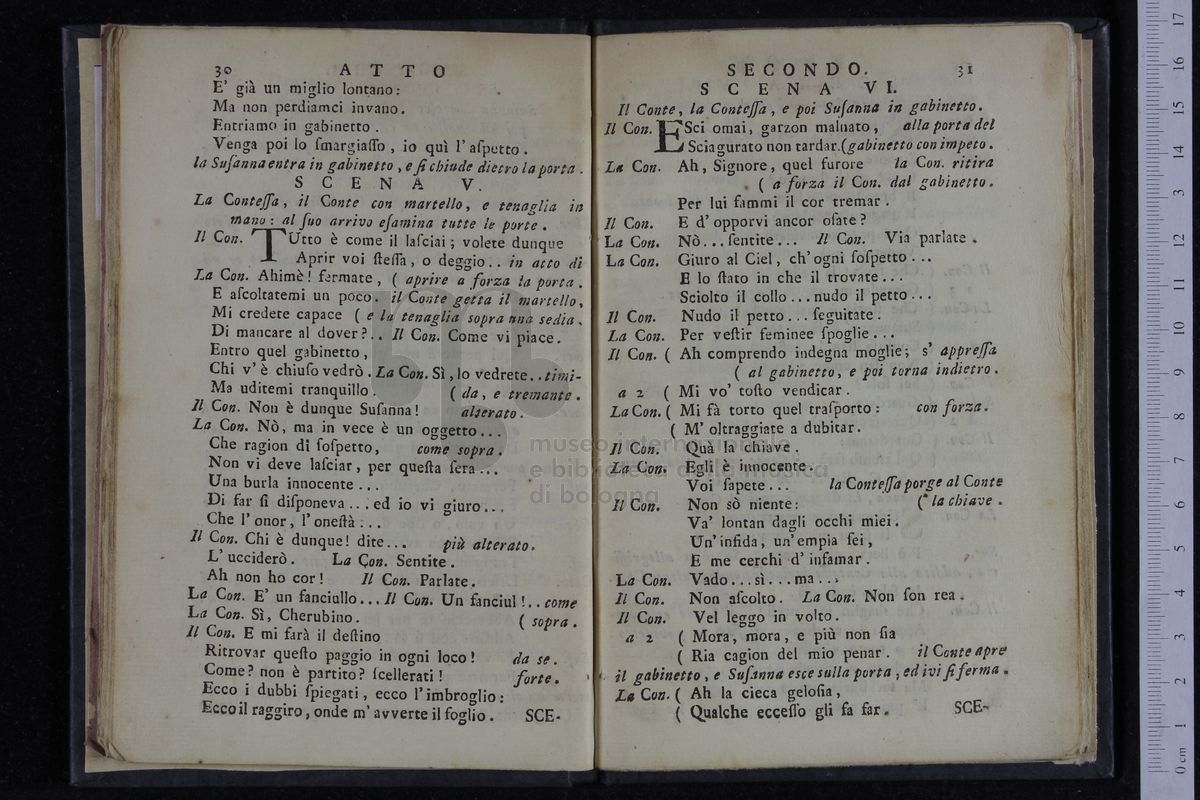 30 A T T O
E' già un miglio lontano:
Ma non perdiamci invano.
Entriamo in gabinetto.
Venga poi lo ſmargiaſſo, io quì l'aſpetto.
la Suſanna entra in gabinetto, e ſi chiude dietro la porta.
S C E N A V.
La Conteſſa, il Conte con martello, e tenaglia in
mano: al ſuo arrivo eſamina tutte le porte.
Il Con. TUtto è come il laſciai; volete dunque
Aprir voi ſteſſa, o deggio.. in atto di
La Con. Ahimè! fermate, ( aprire a forza la porta.
E aſcoltatemi un poco. il Conte getta il martello,
Mi credete capace ( e la tenaglia sopra una sedia.
Di mancare al dover?.. Il Con. Come vi piace.
Entro quel gabinetto,
Chi v'è chiuſo vedrò. La Con. Sì, lo vedrete..timi-
Ma uditemi tranquillo. ( da, e tremante.
Il Con. Non è dunque Suſanna! alterato.
La Con. Nò, ma in vece è un oggetto...
Che ragion di ſoſpetto, come sopra.
Non vi deve laſciar, per queſta ſera...
Una burla innocente...
Di far ſi diſponeva...ed io vi giuro...
Che l'onor, l'oneſtà...
Il Con. Chi è dunque! dite... più alterato.
L'ucciderò. La Con. Sentite.
Ah non ho cor! Il Con. Parlate.
La Con. E' un fanciullo...Il Con. Un fanciul!..come
La Con. Sì, Cherubino. ( sopra.
Il Con. E mi farà il deſtino
Ritrovar queſto paggio in ogni loco! da se.
Come? non è partito? ſcellerati! forte.
Ecco i dubbi ſpiegati, ecco l'imbroglio:
Ecco il raggiro, onde m'avverte il foglio. SCE-
SECONDO. 31
S C E N A VI.
Il Conte, la Conteſſa, e poi Suſanna in gabinetto.
Il Con. ESci omai, garzon malnato, alla porta del
Sciagurato non tardar.(gabinetto con impeto.
La Con. Ah, Signore, quel furore la Con. ritira
( a forza il Con. dal gabinetto.
Per lui fammi il cor tremar.
Il Con. E d'opporvi ancor oſate?
La Con. Nò...ſentite... Il Con. Via parlate.
La Con. Giuro al Ciel, ch'ogni ſoſpetto...
E lo ſtato in che il trovate...
Sciolto il collo...nudo il petto...
Il Con. Nudo il petto...ſeguitate.
La Con. Per veſtir feminee ſpoglie...
Il Con. ( Ah comprendo indegna moglie; s'appreſſa
( al gabinetto, e poi torna indietro.
a 2 ( Mi vo' toſto vendicar.
La Con. ( Mi fà torto quel traſporto: con forza.
( M'oltraggiate a dubitar.
Il Con. Quà la chiave.
La Con. Egli è innocente.
Voi ſapete... la Conteſſa porge al Conte
Il Con. Non sò niente: ( la chiave.
Va' lontan dagli occhi miei.
Un'infida, un'empia ſei,
E me cerchi d'infamar.
La Con. Vado...sì...ma...
Il Con. Non aſcolto. La Con. Non ſon rea.
Il Con. Vel leggo in volto.
a 2 ( Mora, mora, e più non ſia
( Ria cagion del mio penar. il Conte apre
il gabinetto, e Suſanna esce sulla porta, ed ivi ſi ferma.
La Con. ( Ah la cieca geloſia,
( Qualche ecceſſo gli fa far. SCE-
museo internazionale
e biblioteca della musica
di bologna
0 cm 1 2 3 4 5 6 7 8 9 10 11 12 13 14 15 16 17